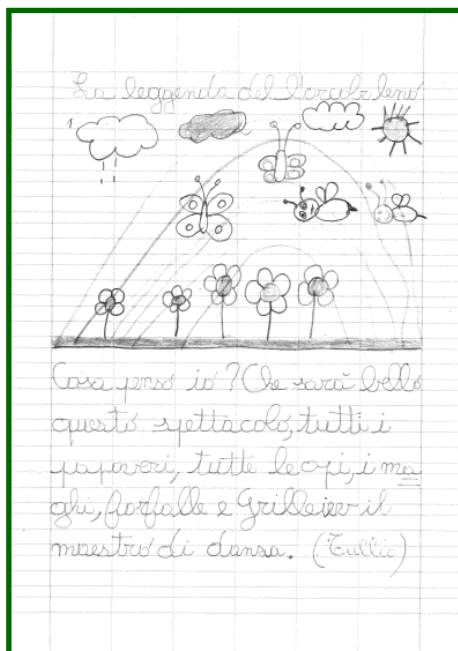 La leggenda del l'arcobaleno
1
Cosa penso io? Che sarà bello
questo spettacolo, tutti i
papaveri, tutte le api, i ma
ghi, farfalle e Grilleiev il
maestro di danza. (Tullio)